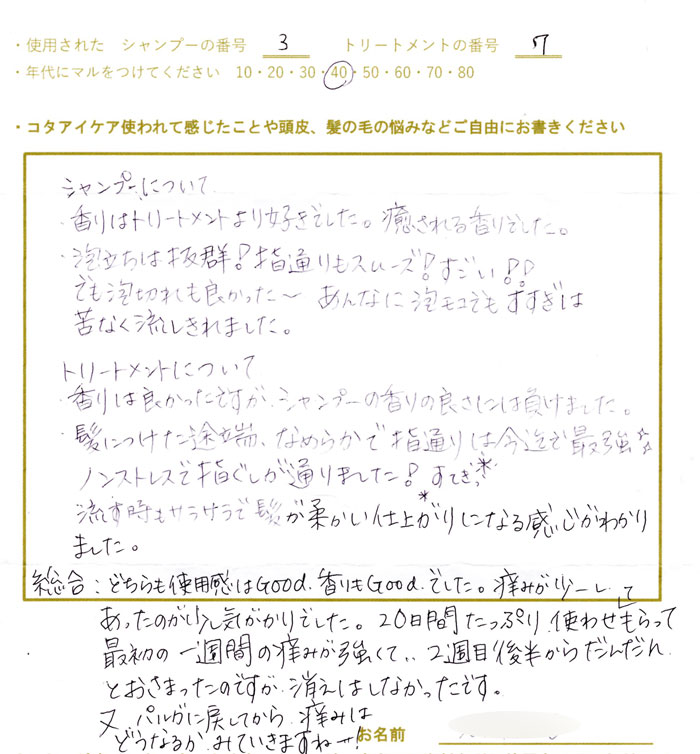 ・使用された シャンプーの番号 3 トリートメントの番号 7
・年代にマルをつけてください 10・20・30・40・50・60・70・80
・コタアイケア使われて感じたことや頭皮、髪の毛の悩みなどご自由にお書きください
シャンプーについて
・香りはトリートメントより好きでした。癒される香りでした。
・泡立ちは抜群!指通りもスムーズ!すごい!!
でも泡切れも良かった〜 あんなに泡モコでもすすぎは
苦なく流しきれました。
トリートメントについて
・香りは良かったですが、シャンプーの香りの良さには負けました。
・髪につけた途端、なめらかで指通りは今迄で最強☆☆
ノンストレスで指ぐしが通りました!すてき
流す時もサラサラで髪が柔かい仕上がりになる感じがわかり
ました。
総合:どちらも使用感はGood.香りもGood.でした。痒みが少ーして
あったのが少し気がかりでした。20日間たっぷり使わせもらって
最初の一週間の痒みが強くて、、2週目後半からだんだん
とおさまったのですが、消えはしなかったです。
又、パルガに戻してから、痒みは
どうなるか、みていきますねー!
お名前